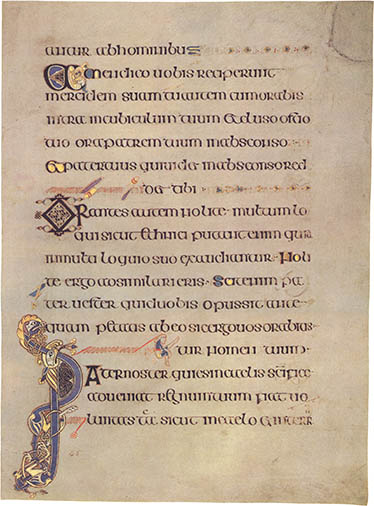 entur abhominibus
Amen dico uobis reciperunt
mercidem suam tu autem cum orabis
intra in cubiculum tuum & cluso ostio
tuo ora patrem tuum in absconso
& pater tuus qui in absconso red
tibi
Orantes autem nolite multum lo
qui sicut ethnici putant enim quia
in multa loquio suo exaudiantur Noli
te ergo adsimilari eis Scit enim pa
ter uester quid uobis opus sit ante
quam petatis ab eo sic ergo uos orabitis
tur nomen tuum
Pater noster qui es in caelis scifice
adueniat regnum tuum fiat uo
luntas tua sicut in caelo & in terr